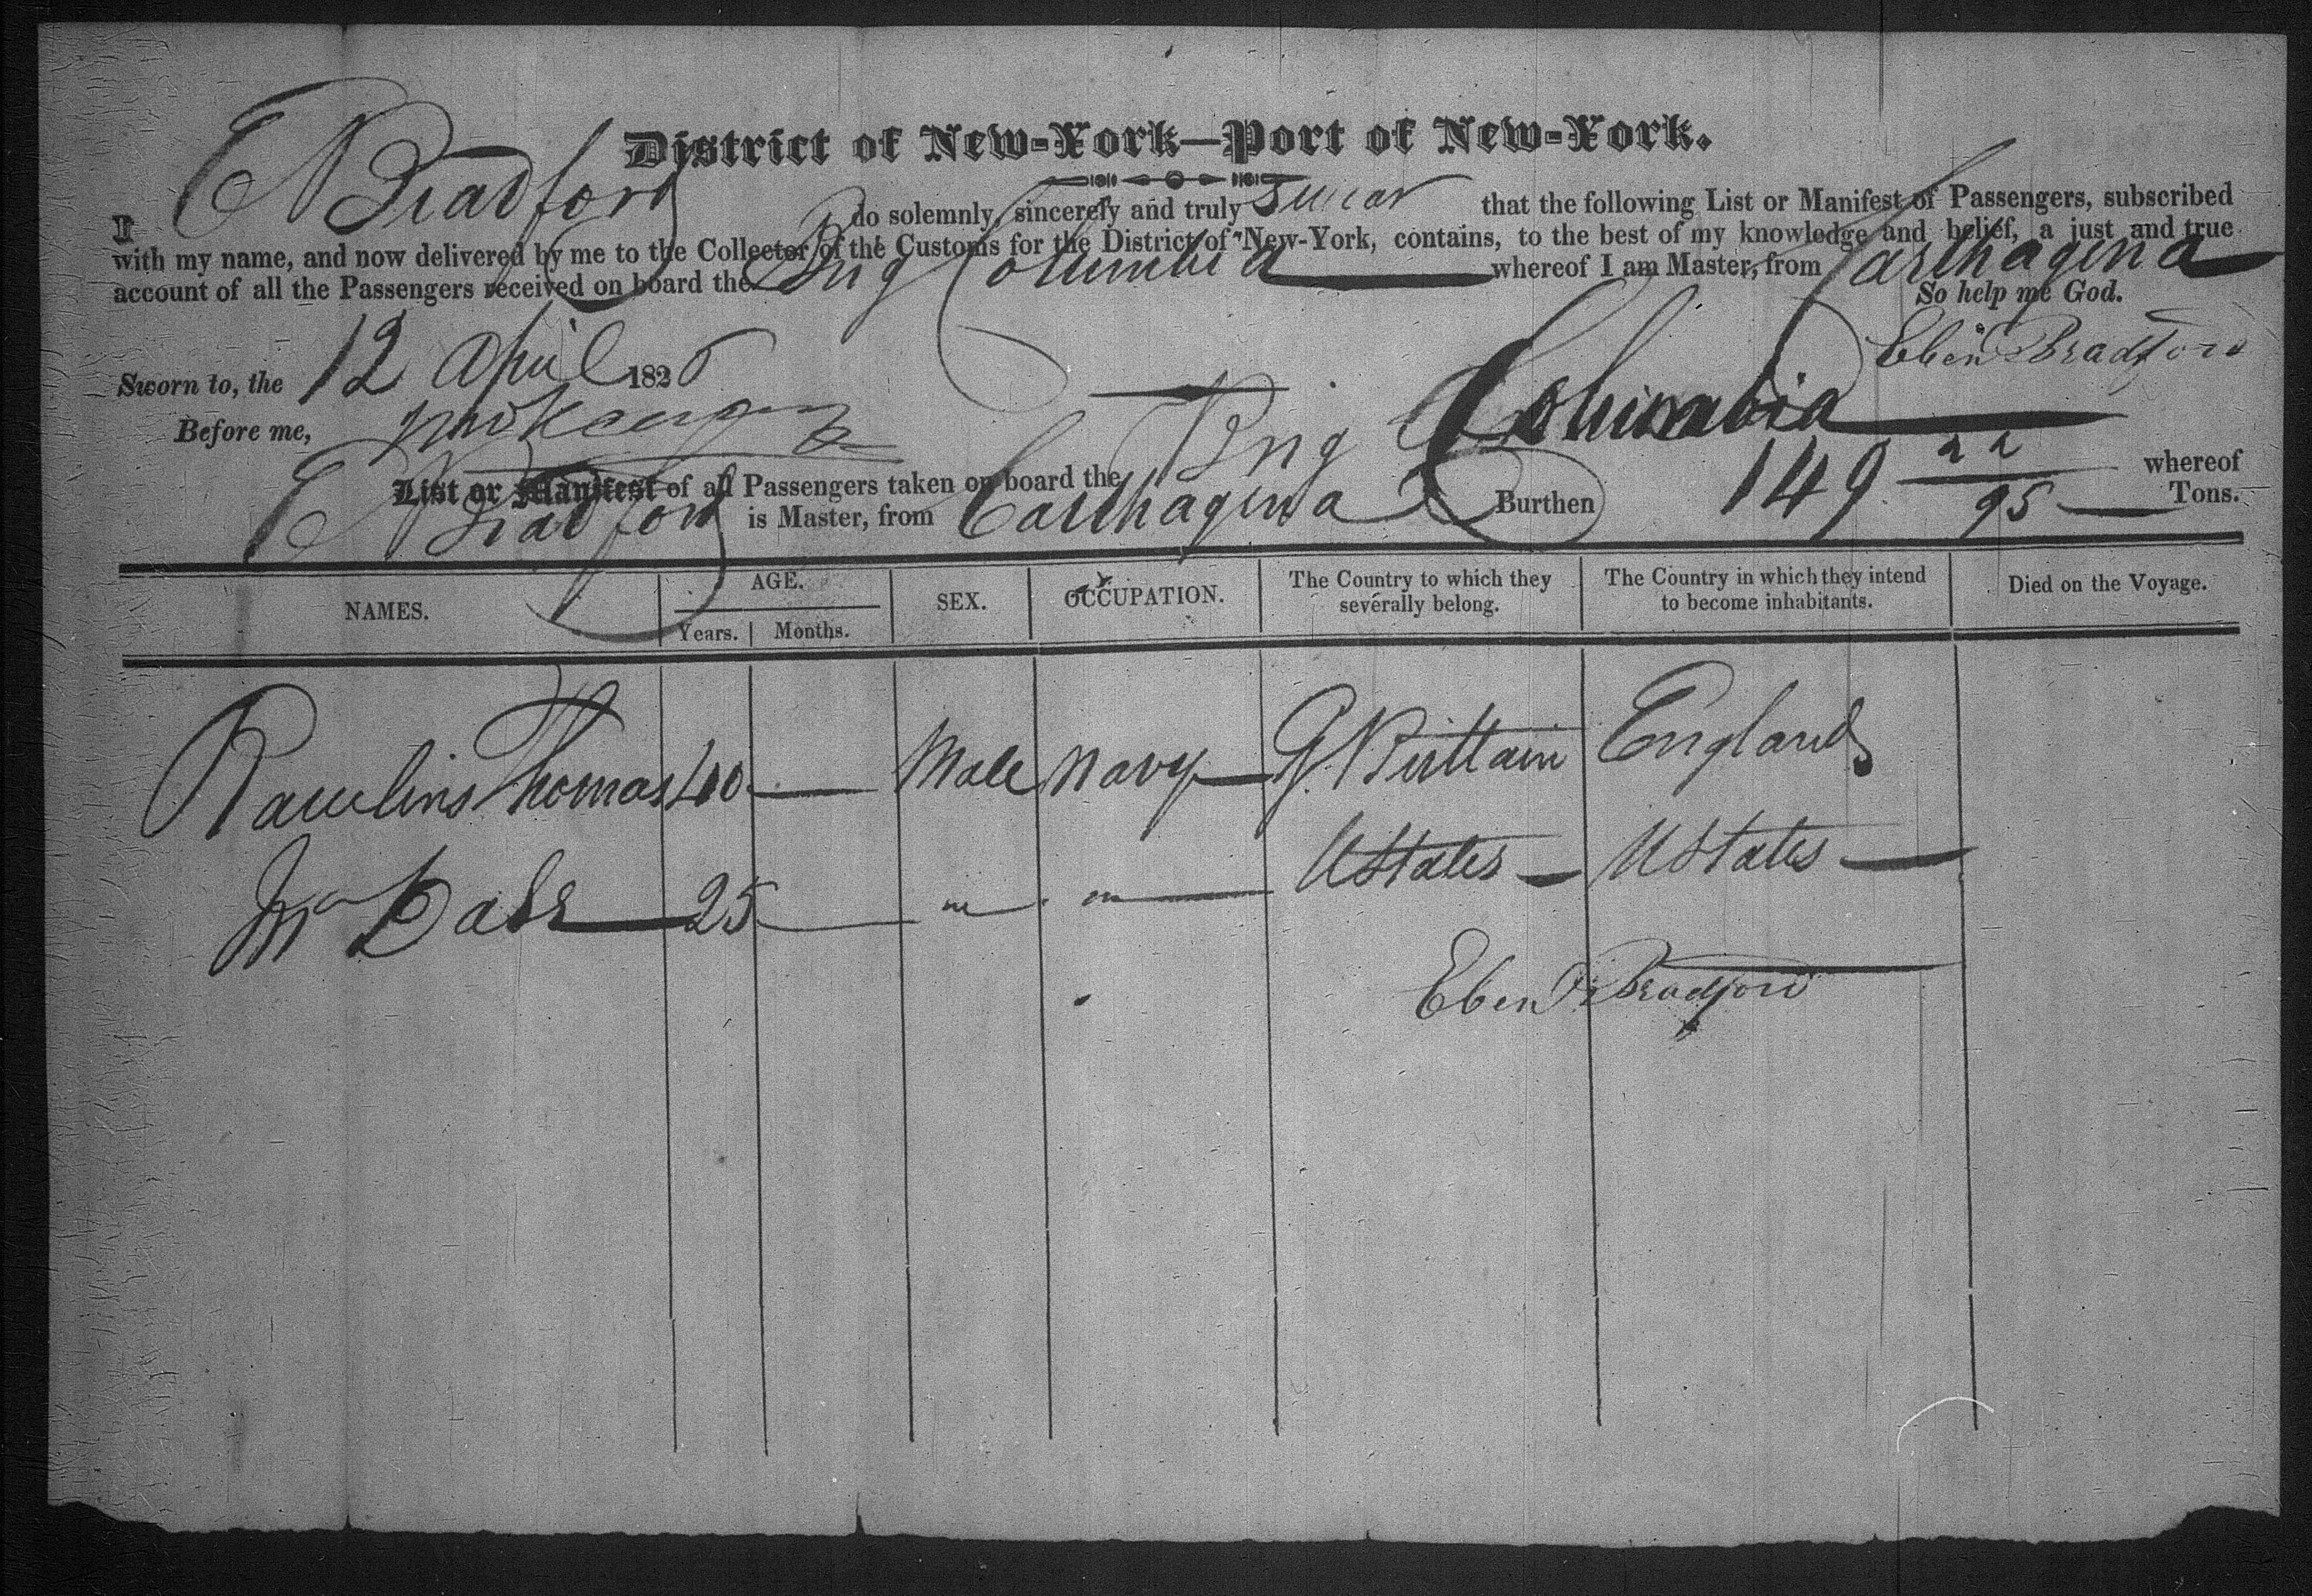 District of New-York—Port of New-York.
I E N Bradford do solemnly, sincerely and truly swear that the following List or Manifest of Passengers, subscribed
with my name, and now delivered by me to the Collector of the Customs for the District of New-York, contains, to the best of my knowledge and belief, a just and true
account of all the Passengers received on board the Brig Columbia whereof I am Master, from Carthagena
So help me God.
Sworn to, the 12 April 1826 Eben Bradford
Before me,
List or Manifest of all Passengers taken on board the Brig Columbia whereof
E N Bradford is Master, from Carthagena Burthen 149 22/95 Tons.
NAMES. AGE. Years. Months. SEX. OCCUPATION. The Country to which they severally belong. The Country in which they intend to become inhabitants. Died on the Voyage.
Rawlins Thomas 40 — Male Navy G. Brittain England
Mr 25 — " " U States — U States —
Eben Bradford